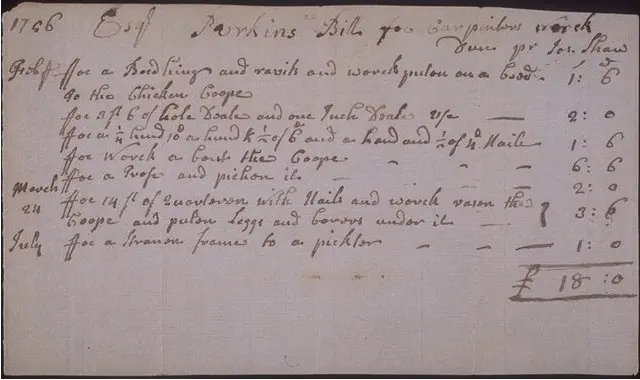 1756 Esqr Perkins Bill for Carpinters worck
Dun pr Jos. Shaw
for a Beedhing and and worck puton on a 1 : 6
to the Chicken Coope
for 3 ft 6 of hole Deale and one Inch Deale Use — 2 : 0
for a ¼ hund 10d a hund & ½ of 6d and a hand and ½ of 4d Nails 1 : 6
for Worck a bout the Coope - - - 6 : 6
for a and puton it - - - 2 : 0
March 24 for 14 ft of Quarteren with Nails and worck the
Coope and puton Leggs and under it — } 3 : 6
July for a frame to a picktor - - — 1 : 0
£ 18 : 0